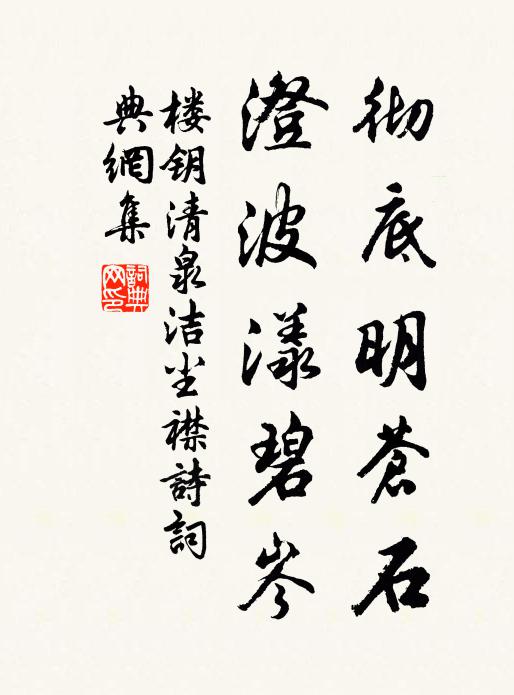 彻底明蒼石
澄波漾碧岑
楼钥清泉洁尘襟詩詞
典網集
詞典
网印